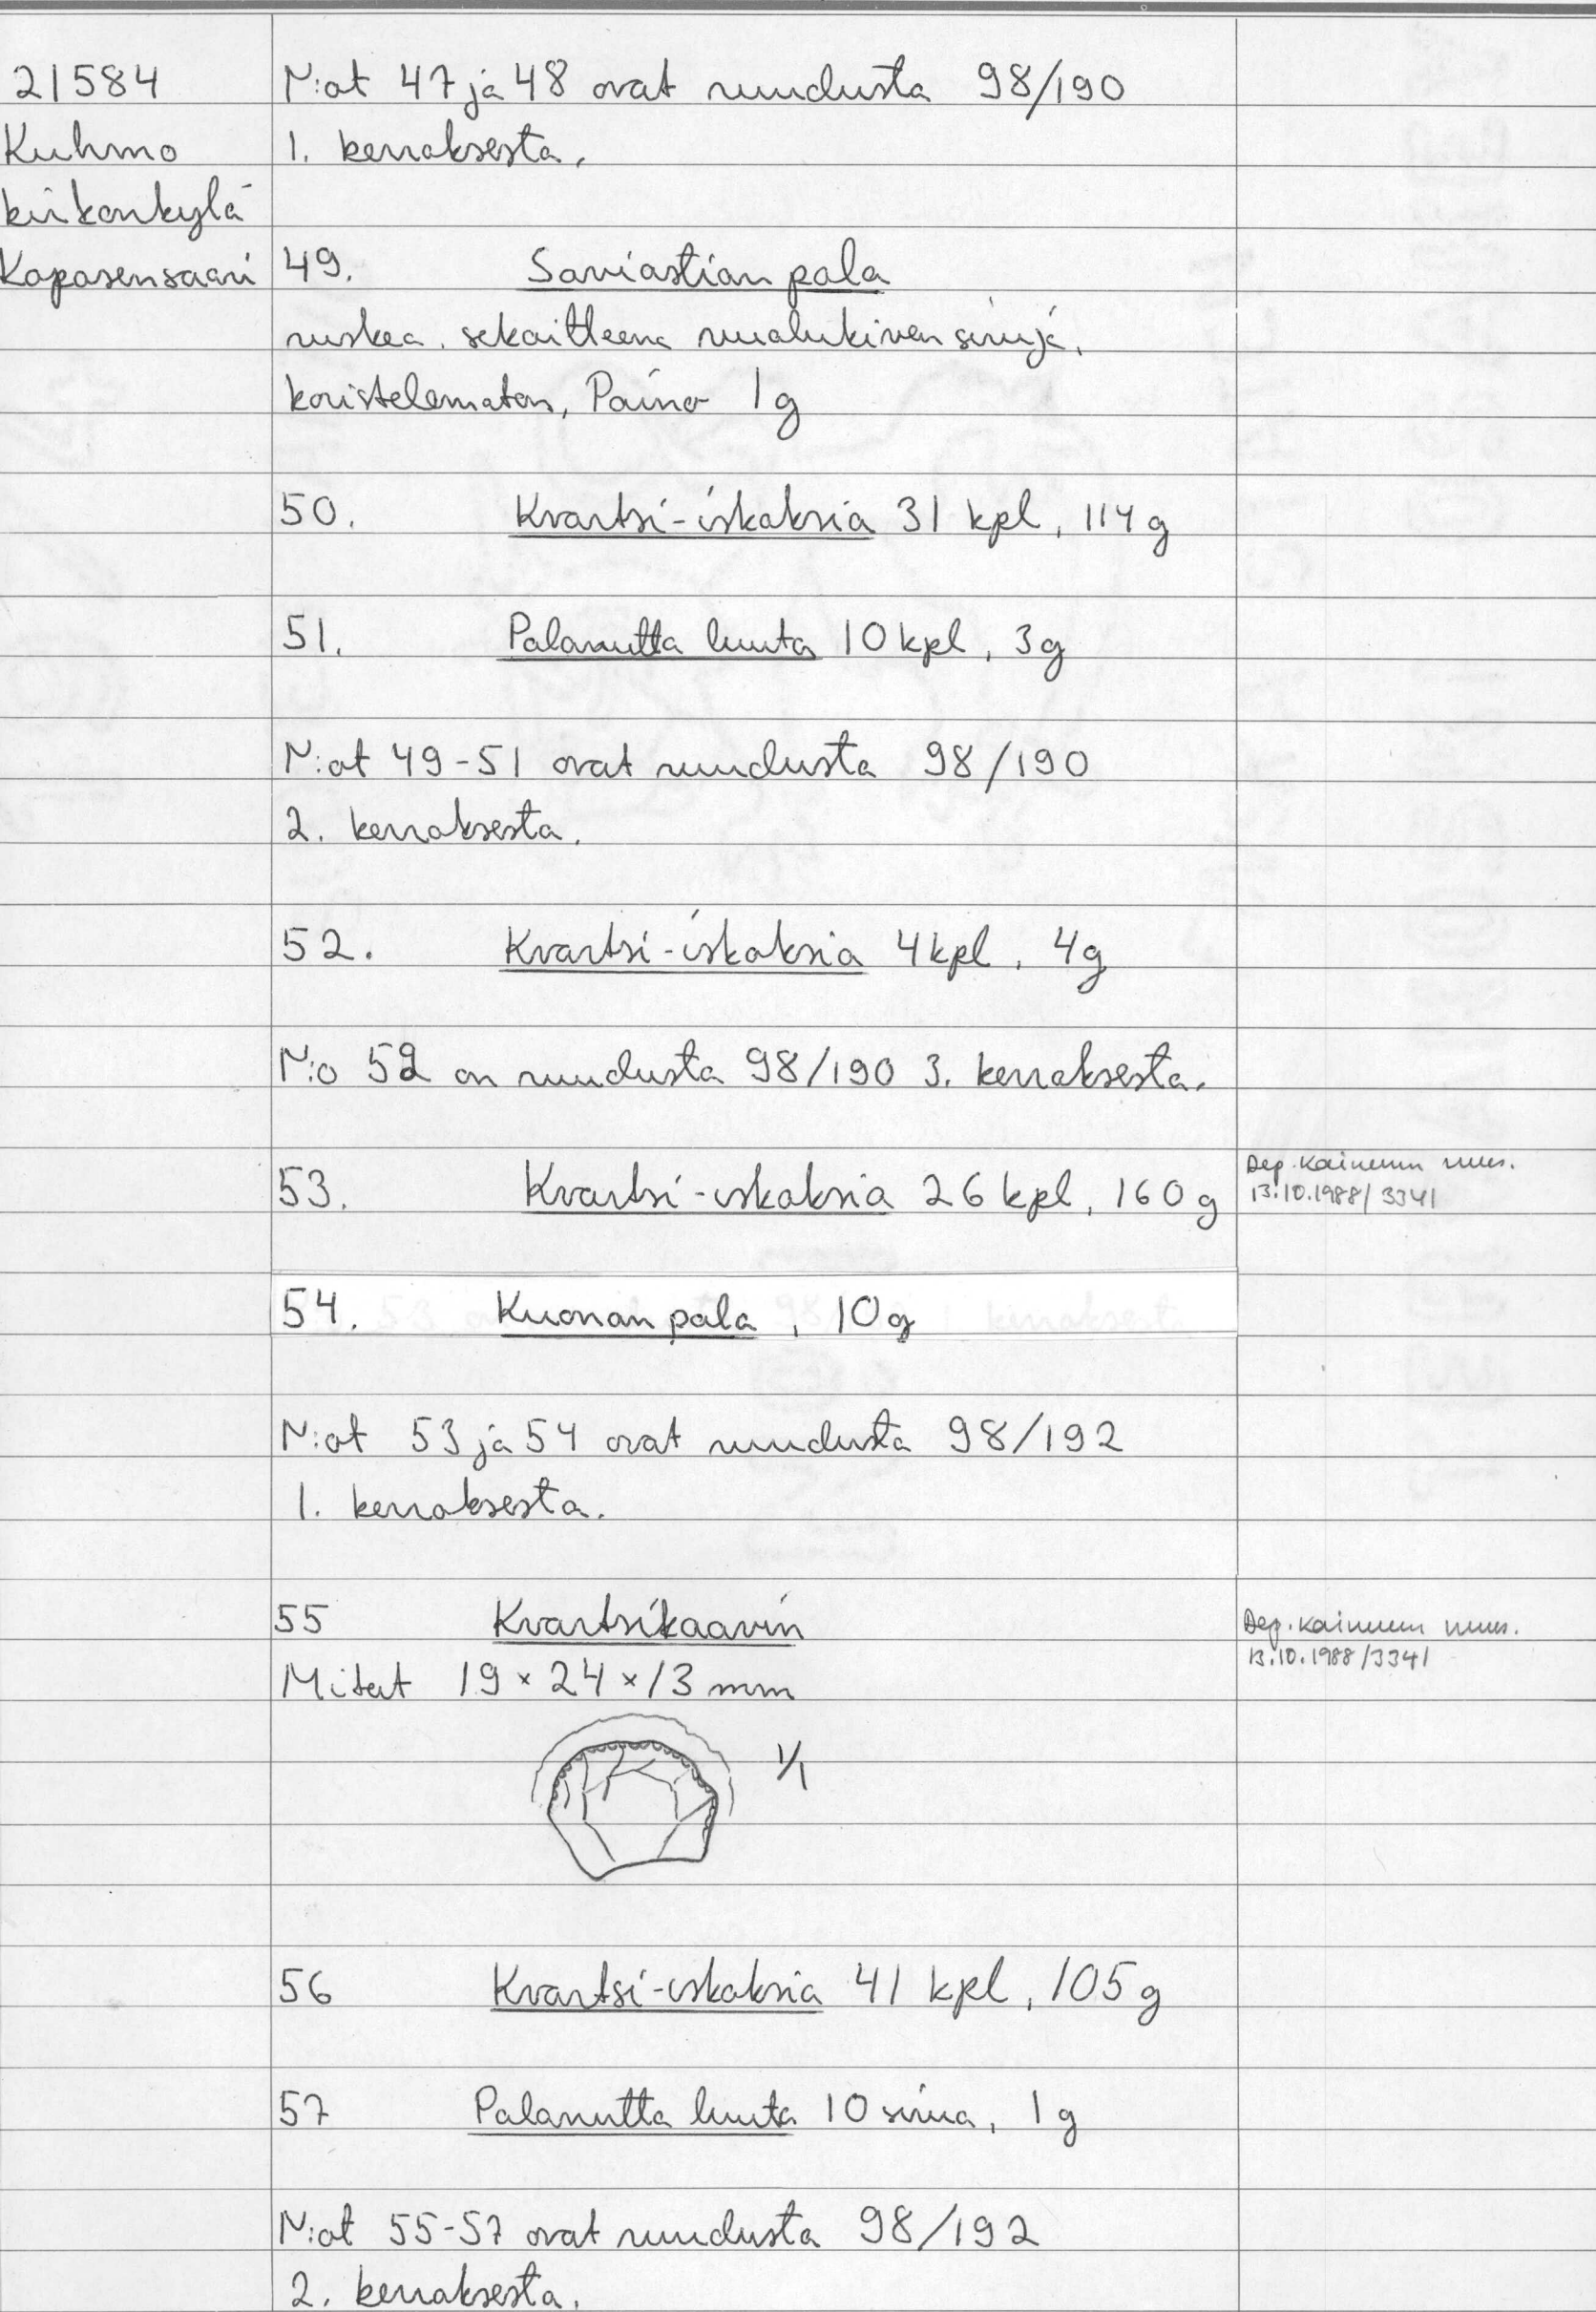 21584
Kuhmo
kirkonkylä
Kaposensaari
N:ot 47 ja 48 ovat ruudusta 98/190
1. kerroksesta.
49. Saviastian pala
ruskea. sekoitteena vuolukiven siruja,
koristelematon, Paino 1g
50. Kvartsi-iskoksia 31 kpl, 114g
51. Palanutta luuta 10 kpl, 3g
N:ot 49-51 ovat ruudusta 98/190
2. kerroksesta.
52. Kvartsi-iskoksia 4 kpl, 4g
N:o 52 on ruudusta 98/190 3. kerroksesta.
53. Kvartsi-iskoksia 26 kpl, 160g
Dep. Kainuun mus.
13.10.1988/3341
54. Kuonan pala, 10g
N:ot 53 ja 54 ovat ruudusta 98/192
1. kerroksesta.
55 Kvartsikaavin
Dep. Kainuun mus.
13.10.1988/3341
Mitat 19 × 24 × 13 mm
1/1
56 Kvartsi-iskoksia 41 kpl, 105g
57 Palanutta luuta 10 sirua, 1g
N:ot 55-57 ovat ruudusta 98/192
2. kerroksesta.